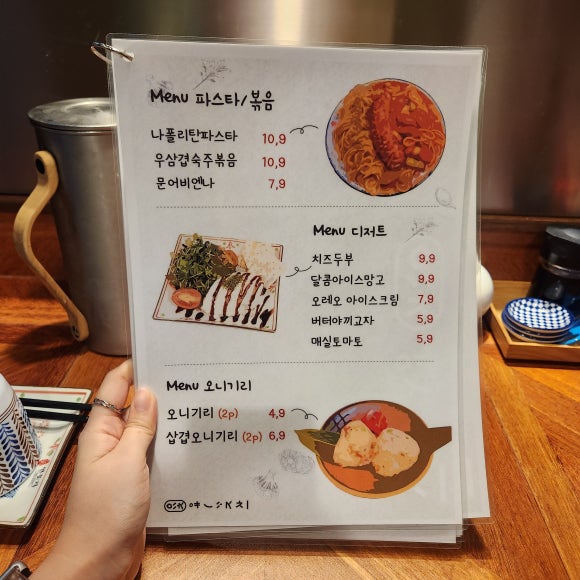 Menu 파스타/볶음
나폴리탄파스타 10,9
우삼겹숙주볶음 10,9
문어비엔나 7,9
Menu 디저트
치즈두부 9,9
달콤아이스망고 9,9
오레오 아이스크림 7,9
버터야끼교자 5,9
매실토마토 5,9
Menu 오니기리
오니기리 (2p) 4,9
삽겹오니기리 (2p) 6,9